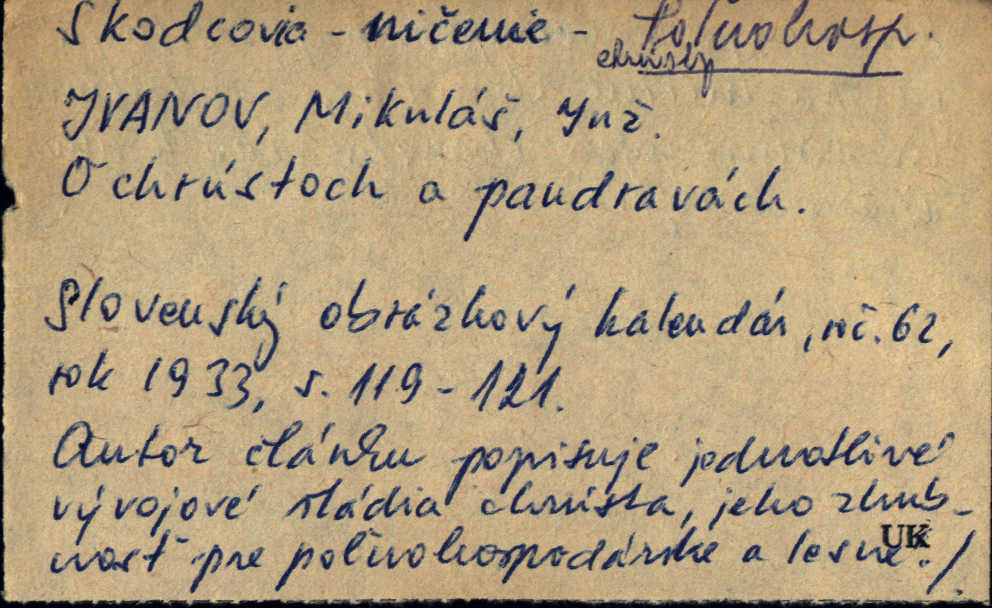 Škodcovia - ničenie - Poľnohosp.
chrústy
IVANOV, Mikuláš, Inž.
O chrústoch a pandravách.
Slovenský obrázkový kalendár, roč. 62,
rok 1933, s. 119-121.
Autor článku popisuje jednotlivé
vývojové štádia chrústa, jeho zhub-
nosť pre poľnohospodárske a lesné./.
UK